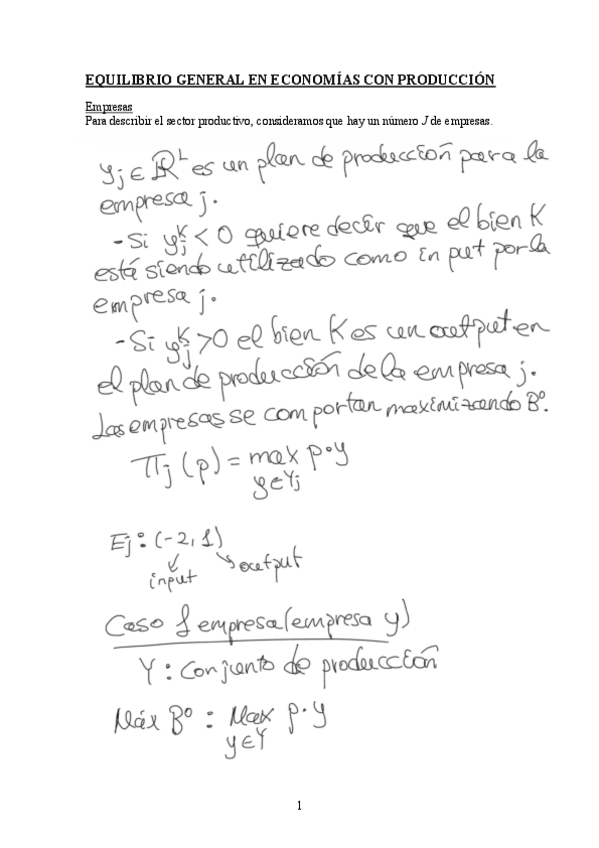 EQUILIBRIO GENERAL EN ECONOMÍAS CON PRODUCCIÓN
Empresas
Para describir el sector productivo, consideramos que hay un número J de empresas.
yj ∈ ℝᴸ es un plan de producción para la
empresa j.
- Si yⱼᴷ < 0 quiere decir que el bien K
está siendo utilizado como input por la
empresa j.
- Si yⱼᴷ > 0 el bien K es un output en
el plan de producción de la empresa j.
Las empresas se comportan maximizando Bº.
Πj (p) = max p·y
y∈Yj
Ej: (-2, 1)
input output
Caso 1 empresa (empresa y)
Y: Conjunto de producción
Máx Bº: Max p·y
y∈Y
1